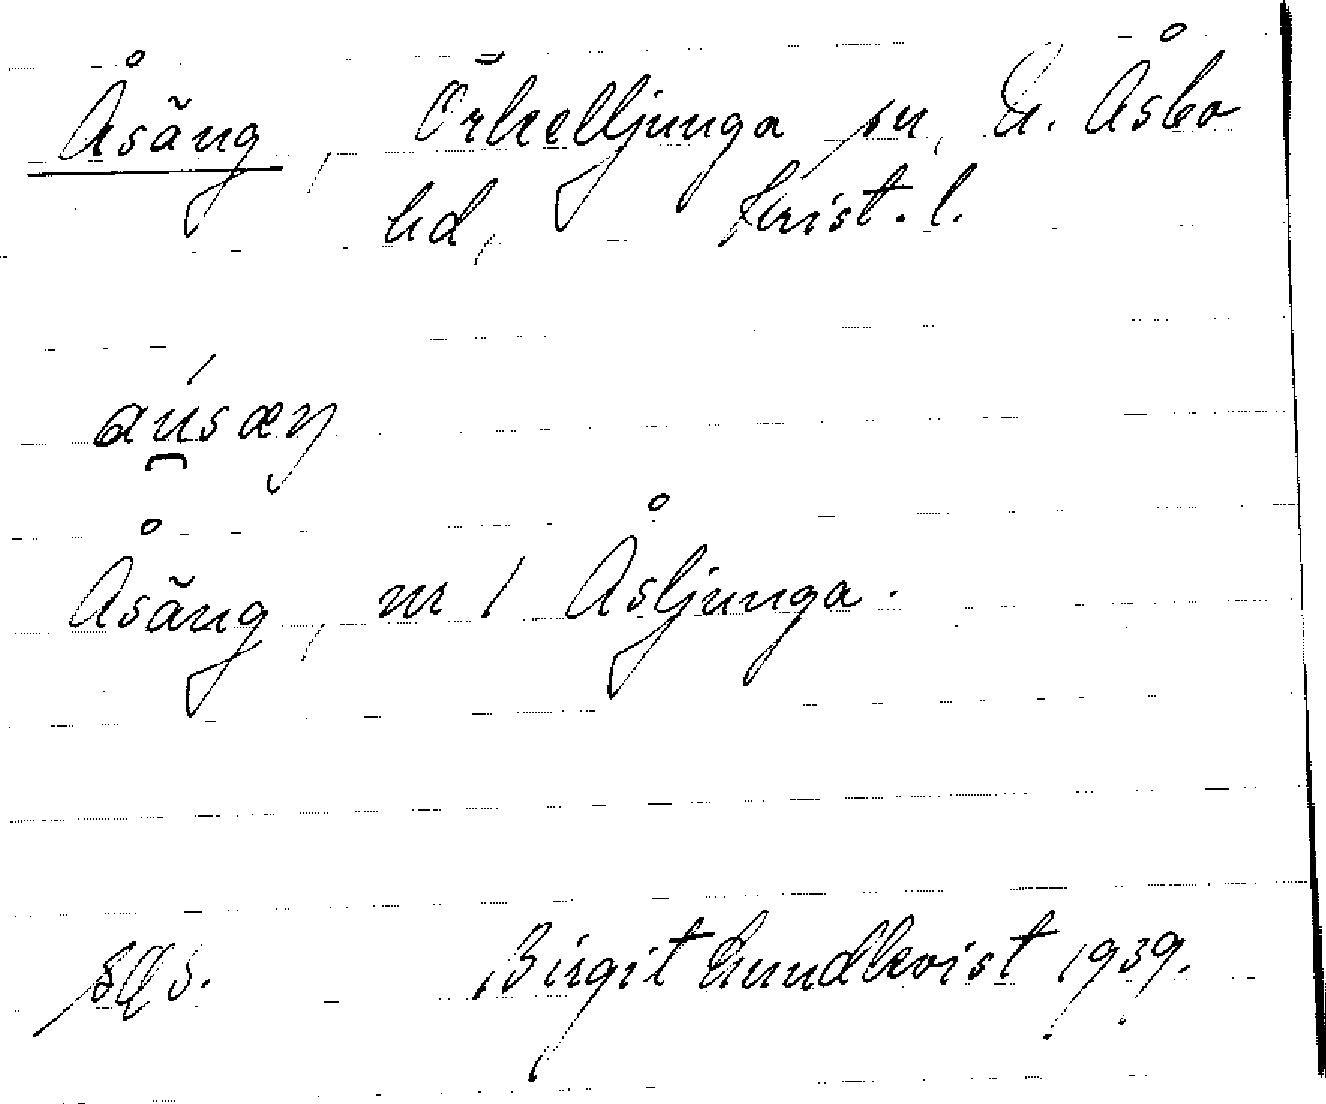 Åsäng, Örkelljunga sn, N. Åsbo
hd, Krist. l.
au̯sæŋ
Åsäng, nr 1 Åsljunga.
Birgit Lundkvist 1939.